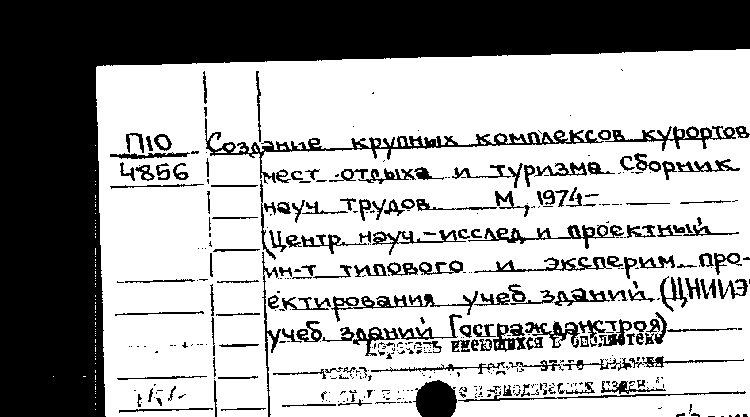 П10 Создание крупных комплексов курортов
4856 мест отдыха и туризма Сборник
науч. трудов. М, 1974-
(Центр. науч.-исслед и проектный
ин-т типового и эксперим. про-
ектирования учеб. зданий (ЦНИИЭ
учеб. зданий Госгражданстроя)
Перечень имеющихся в библиотеке
томов, годов этого издания
периодических изданий